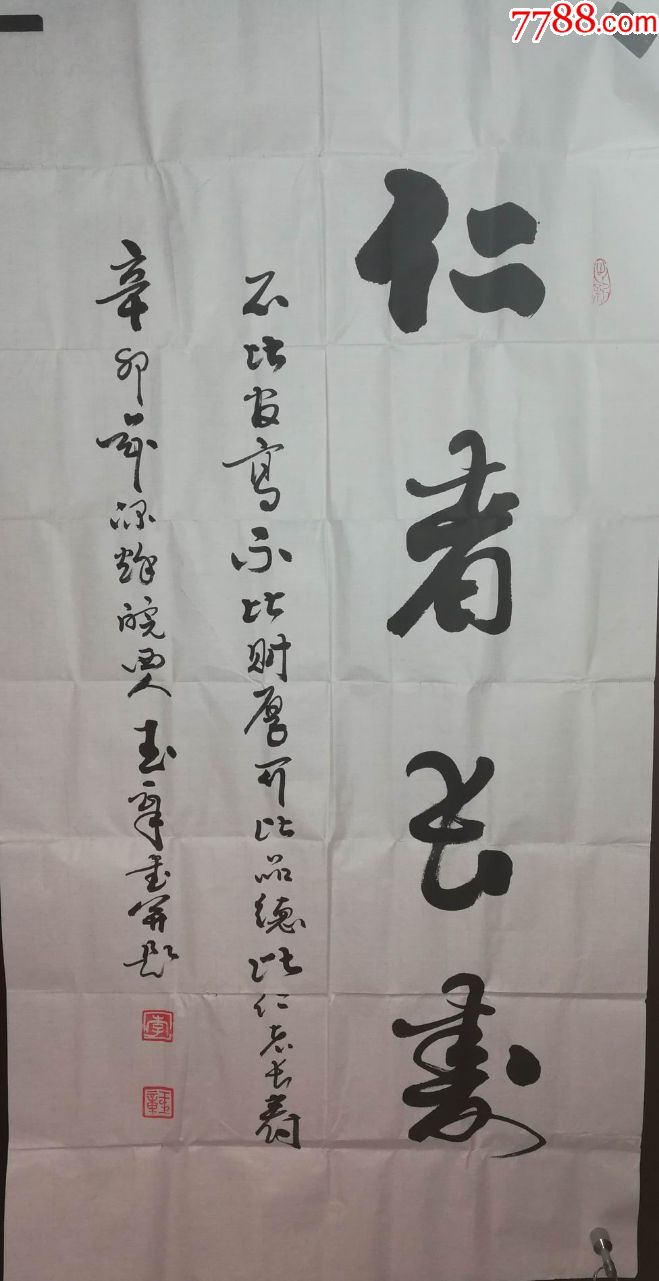 7788.com
仁者长寿
不比官高不比财厚可比品德比仁者长寿
辛卯年深秋皖西人 章书并题
李